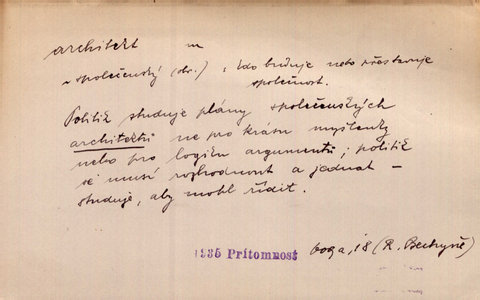 architekt m
~ společenský (obr.), kdo buduje nebo přestavuje
společnost.
Politik studuje plány společenských
architektů ne pro krásu myšlenky
nebo pro logiku argumentů; politik
se musí rozhodnout a jednat –
studuje, aby mohl řídit.
1935 Přítomnost , 18 (R. Bechyně)